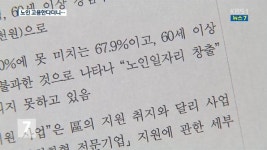 노인 고용한다더니…
KBS 1
뉴스 7
60세 이상
으로
0%에 못 미치는 67.9%이고, 60세 이상
불과한 것으로 나타나 “노인일자리 창출”
지 못하고 있음
원 사업”은 區의 지원 취지와 달리 사업
전문기업」 지원에 관한 세부